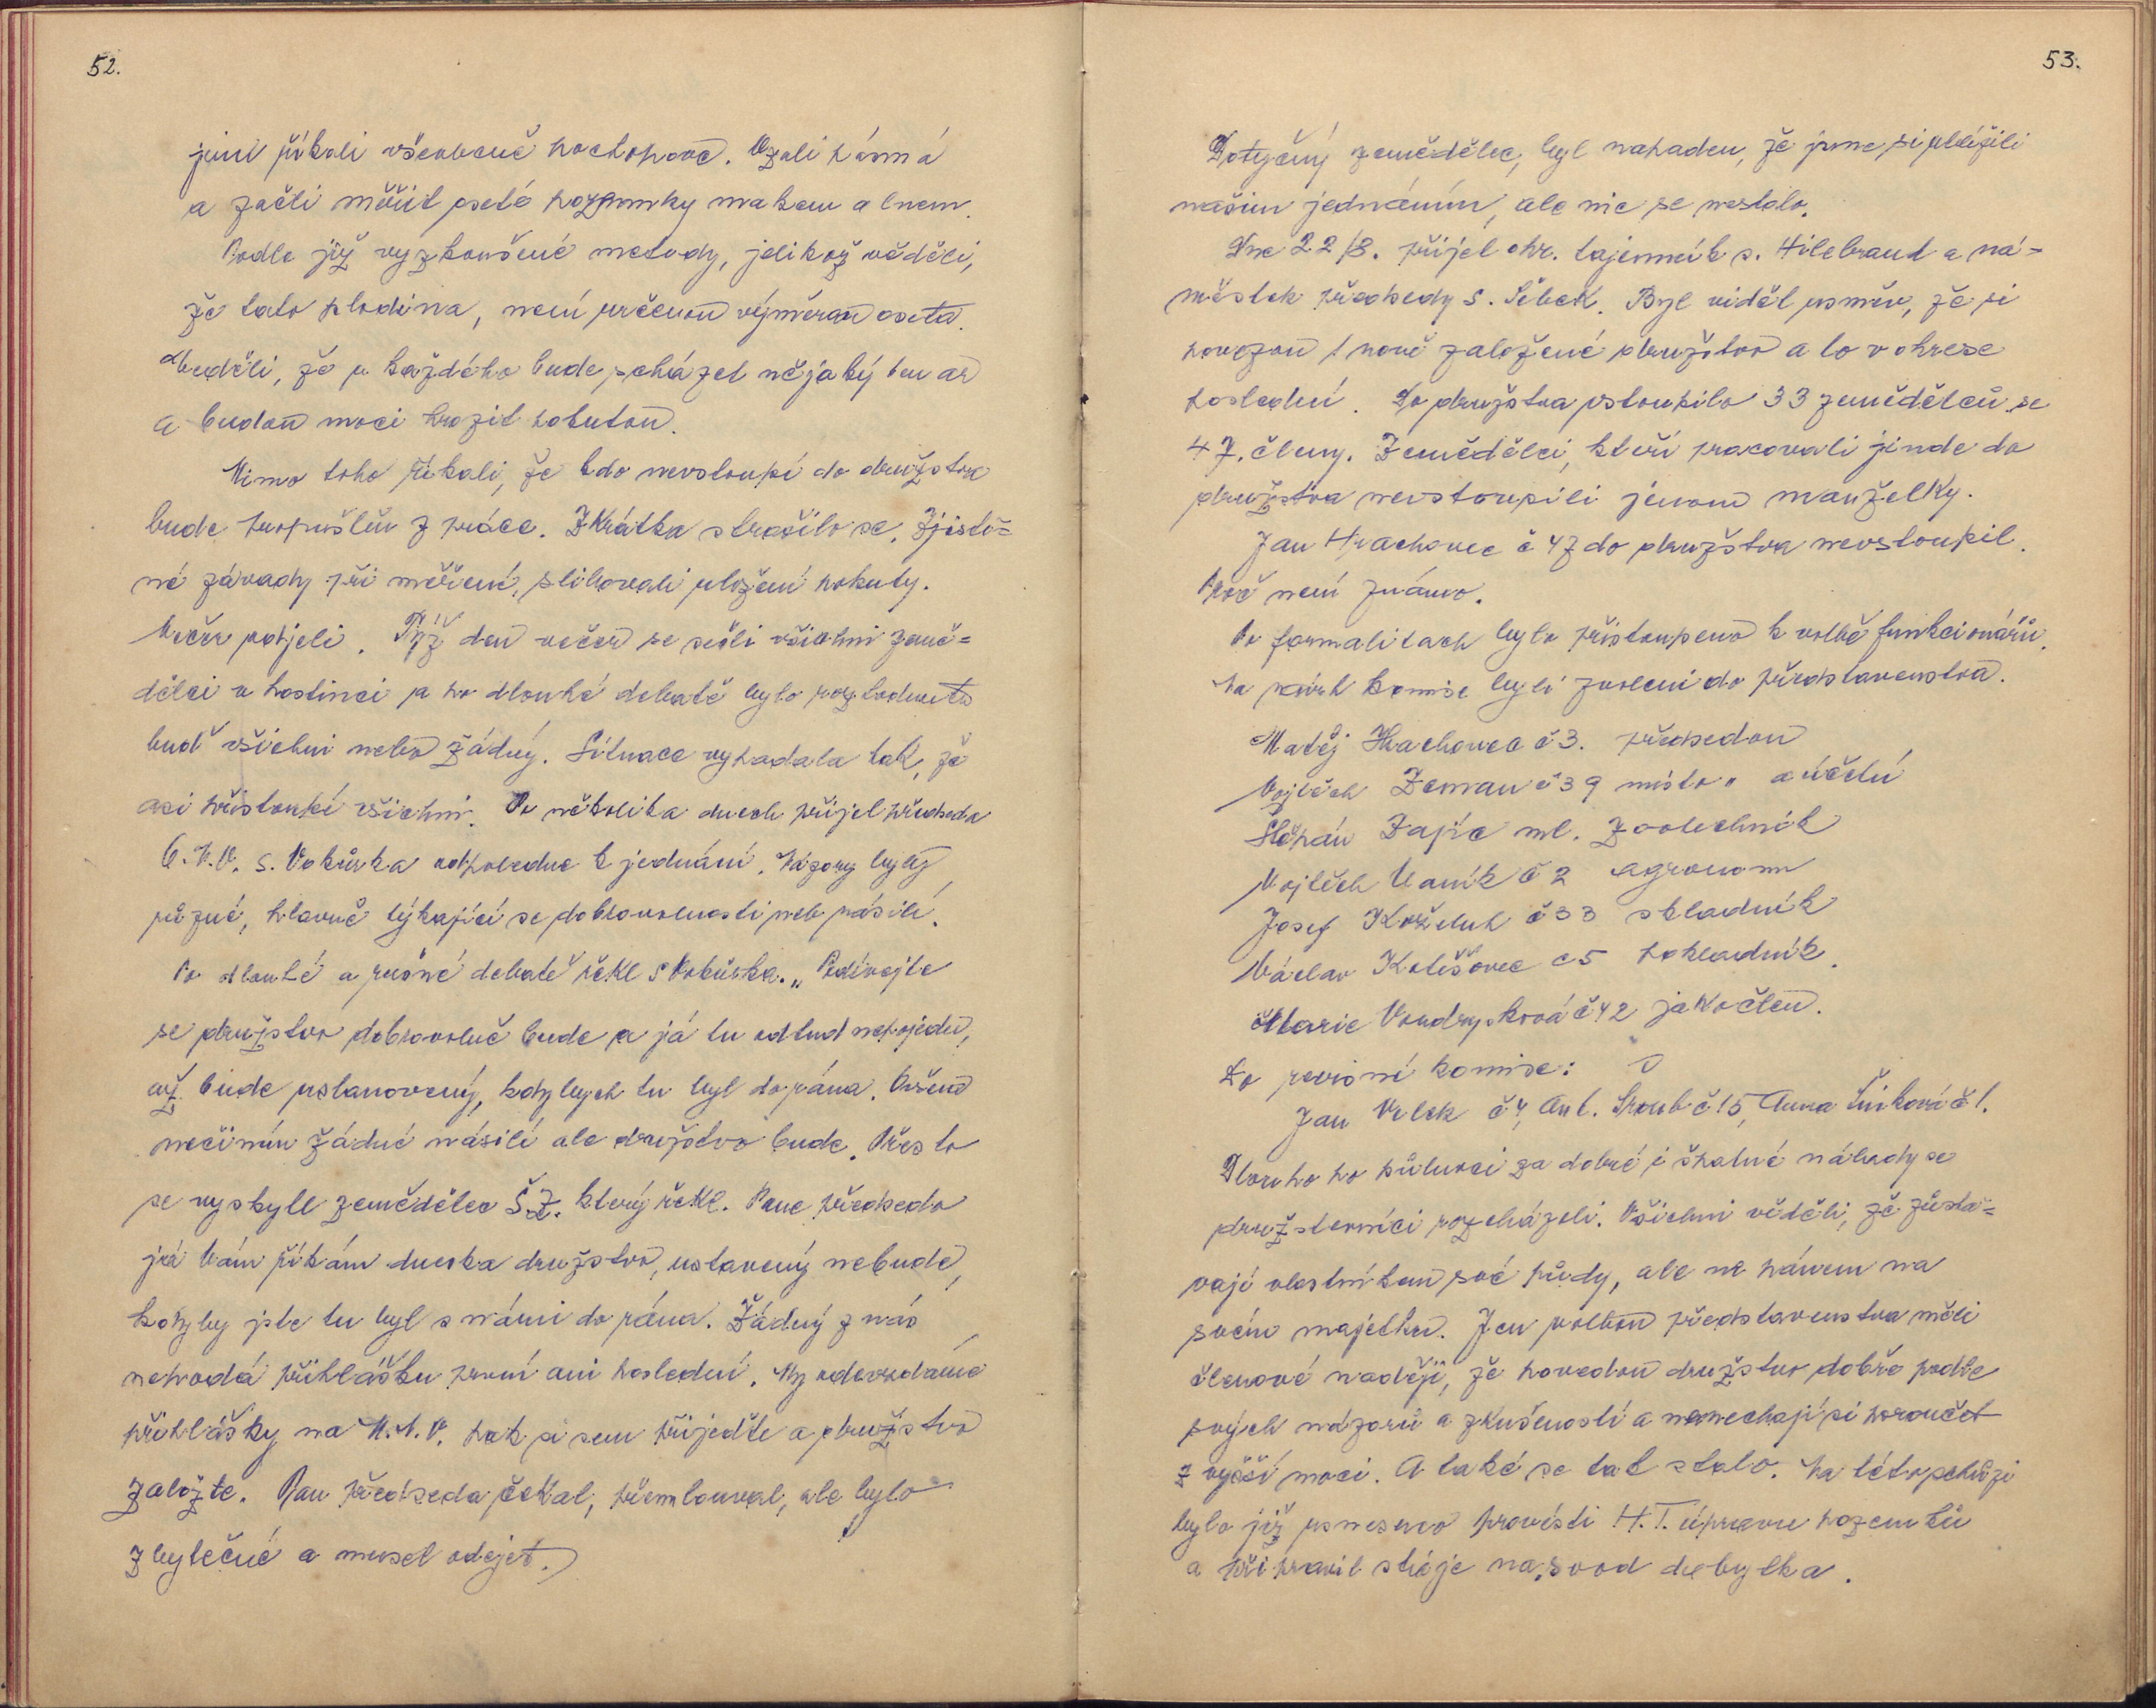 52.
jiní říkali všeobecně pochopové. Vzali pásmá
a začli měřit oseté pozemky makem a lnem.
Podle již vyzkoušené metody, jelikož věděli,
že tato plodina, není určenou výměrou oseta.
Věděli, že u každého bude scházet nějaký ten ar
a budou moci hrozit pokutou.
Mimo toho říkali, že kdo nevstoupí do družstva
bude propuštěn z práce. Zkrátka strašilo se. Zjiště=
né závady při měření, slibovali uložení pokuty.
Večer odjeli. Týž den večer se sešli všichni země=
dělci v hostinci a po dlouhé debatě bylo rozhodnuto
buď všichni nebo žádný. Situace vypadala tak, že
asi přistoupí všichni. Po několika dnech přijel předseda
O.N.V. s. Vokůrka odpoledne k jednání. Názory byly
různé, hlavně týkající se dobrovolnosti neb násilí.
Po dlouhé a rušné debatě řekl s Vokůrka. „Podívejte
se družstvo dobrovolně bude a já tu odtud nepojedu,
až bude ustanovený, kdy bych tu byl do rána. Ovšem
nečiním žádné násilí ale družstvo bude. Přes to
se vyskytl zemědělec Š.Z. který řekl. Pane předsedo
já Vám říkám dneska družstvo, ustavený nebude,
kdyby jste tu byl s námi do rána. Žádný z nás
nepodá přihlášku první ani poslední. My odevzdáme
přihlášky na M.N.V. pak si sem přijeďte a družstvo
založte. Pan předseda čekal, přemlouval, ale bylo
zbytečné a musel odejet.
53.
Dotyčný zemědělec, byl napaden, že jsme si ublížili
našim jednáním, ale nic se nestalo.
Dne 22/8. přijel okr. tajemník s. Hilebrand a ná=
městek předsedy s. Šebek. Byl vidět usměv, že si
povezou 1 nově založené družstvo a to v okrese
poslední. Do družstva vstoupilo 33 zemědělců se
47. členy. Zemědělci, kteří pracovali jinde do
družstva nevstoupili jenom manželky.
Jan Hrachovec č 47 do družstva nevstoupil.
Proč není známo.
Po formalitach bylo přistoupeno k volbě funkcionářů.
Na návrh komise byli zvoleni do představenstva.
Matěj Hrachovec č 3. předsedou
Vojtěch Zeman č 39 místo „ a účetní
Štěpán Zajíc ml. zootechnik
Vojtěch Vaník č 2 agronom
Josef Koželuh č 33 skladník
Václav Kolišovec č5 pokladník.
Marie Vondrysková č 42 jako člen.
Do revisní komise:
Jan Vlček č 4, Ant. Šroub č 15, Anna Šiková č 1.
Dlouho po půlnoci za dobré i špatné nálady se
družstevníci rozcházeli. Všichni věděli, že zůsta=
vají vlastníkem své půdy, ale ne pánem na
svém majetku. Jen volbou představenstva měli
členové naději, že povedou družstvo dobře podle
svých názorů a zkušeností a nenechají si poroučet
z vyšší moci. A také se tak stalo. Na této schůzi
bylo již usneseno provésti H.T. úpravu pozemků
a připravit stáje na svod dobytka.